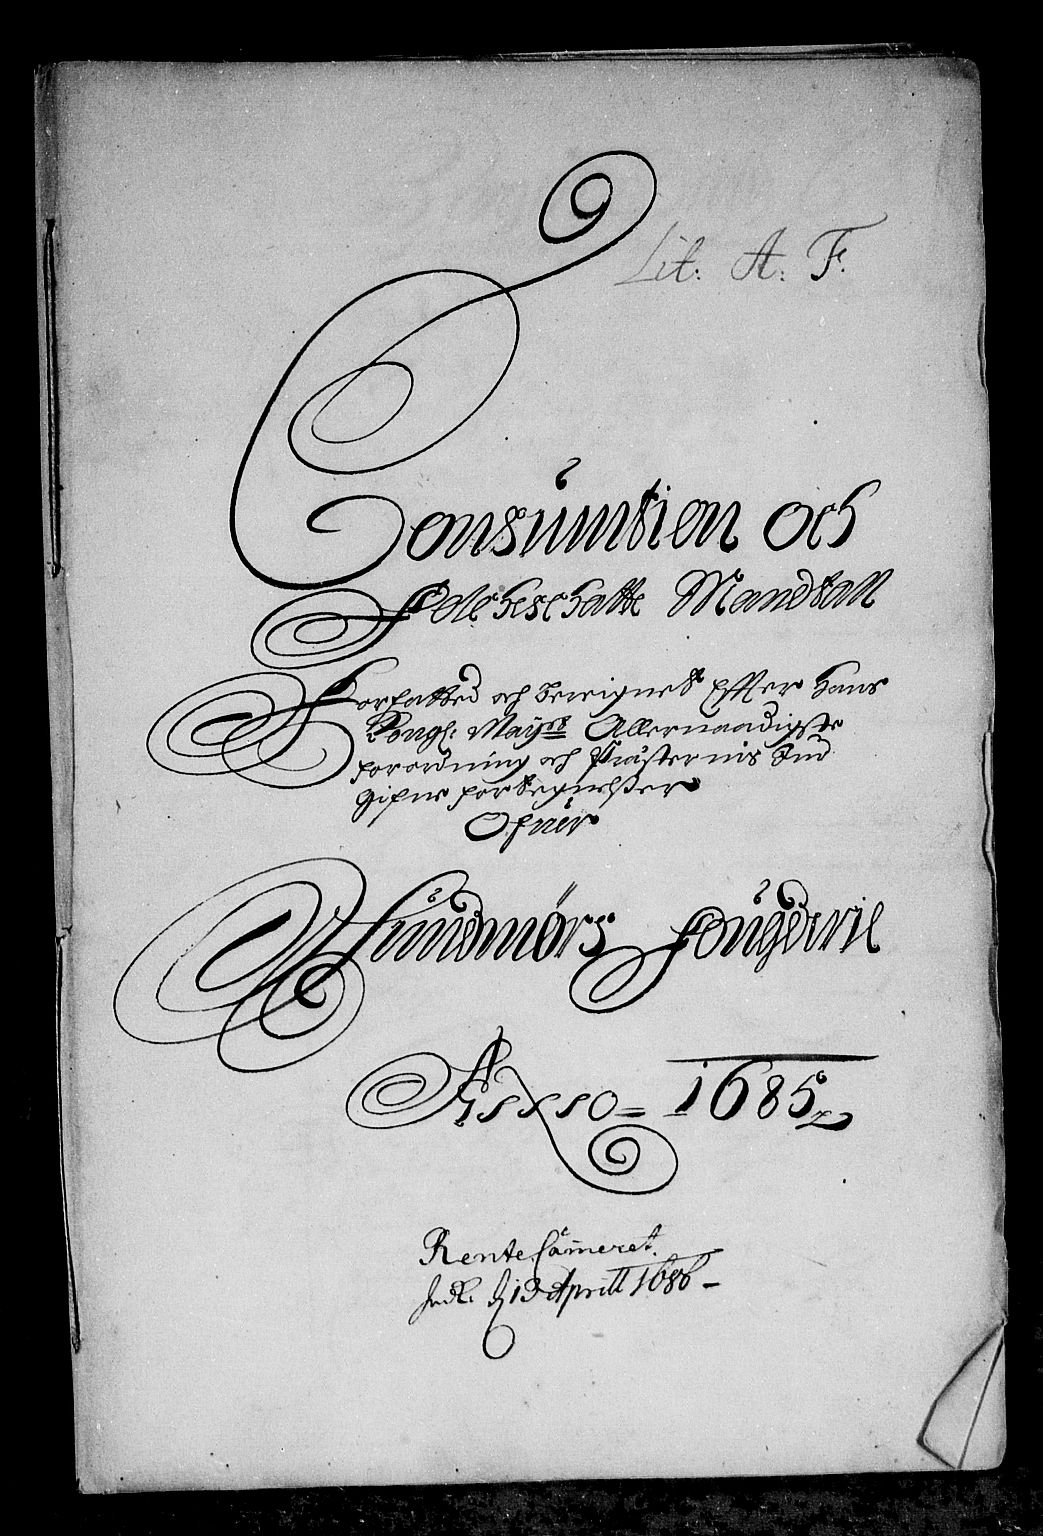 Lit: A: F.
Consumtion och
Folcheschatte Mandtall
Forfatted och bereignet Effter Hans
Kongl: Mayts Allernaadigste
forordning och Præsternis Ind
Gifne fortegnelser
Ofuer
Sundmørs fougderie
Anno 1685
Rente Cammeret.
Indl: d 13 Aprill 1686